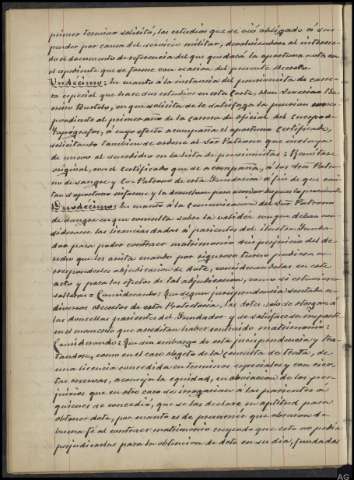 primer termino solicitó, los estudios que se vió obligado á sus-
pender por causa del servicio militar, devolviendose al interesa-
do el documento de referencia del que quedará la oportuna nota en
el espediente que se forme con ocasion del presente decreto.
Undécimo: En cuanto á la instancia del pensionista de carre-
ra especial que hace sus estudios en esta Corte, Don
en que solicita se le satisfaga la pension corres-
pondiente al primer año de la carrera de oficial del Cuerpo de
Topógrafos, á cuyo efecto acompaña el oportuno certificado,
solicitando tambien se ordene al Señor Patrono que incluya
de nuevo al suscribiro en la lista de pensionistas: Remitase
original, con el certificado que se acompaña, á los Señores Patro-
no de sangre y Co-Patrono de esta fundacion á fin de que emi-
tan su oportuno informe y la devuelvan para acordar despues lo procedente.
Duodécimo: En cuanto á la Comunicacion del Señor Patrono
de sangre en que consulta sobre la validez con que deban con-
siderarse las licencias dadas á parientes del ilustre Funda-
dor para poder contraer matrimonio sin perjuicio del de-
recho que les asista cuando por riguroso turno pudiera co-
rresponderles adjudicacion de dote, considerandolas en este
acto y para los efectos de tal adjudicacion, como si estuvieran
solteras: Considerando: Que segun jurisprudencia sentada en
diversos decretos de este Protectorado, las dotes solo se otorgan á
las doncellas parientes del Fundador y se satisface su importe
en el momento que acreditan haber contraido matrimonio:
Considerando: Que sin embargo de esta jurisprudencia y tra-
tandose, como en el caso objeto de la consulta se trata, de
una licencia concedida en terminos especiales y con cier-
tas reservas, aconseja la equidad, en evitacion de los per-
juicios que en otro caso se irrogarian á las parientes á
quienes se concedió, que se las declare en aptitud para
obtener dote, por cuanto es de presumir que obraron de
buena fé al contraer matrimonio creyendo que esto no podia
perjudicarlas para la obtencion de dote en su dia, fundadas
AG